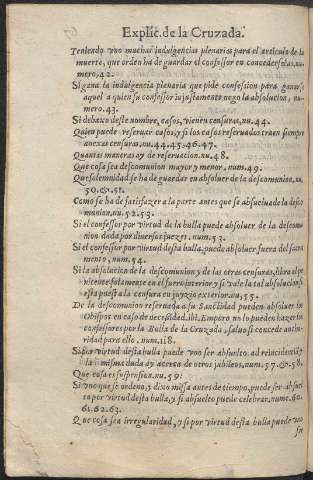 Explic. de la Cruzada.
Teniendo vno muchas indulgencias plenarias para el articulo de la
muerte, que orden ha de guardar el confessor en concederselas, nu-
mero, 42.
Si gana la indulgencia plenaria que pide confession para ganarse
aquel a quien su confessor injustamente nego la absolucion, nu-
mero. 43.
Si debaxo deste nombre, casos, vienen censuras, nu. 44.
Quien puede reseruar casos, y si los casos reseruados traen siempre
anexas censuras, nu. 44. 45. 46. 47.
Quantas maneras ay de reseruacion. nu. 48.
Que cosa sea descomunion mayor y menor, num. 49.
Que solemnidad se ha de guardar en absoluer de la descomunion, nu.
50. & 51.
Como se ha de satisfazer a la parte antes que se absuelua de la desco
munion, nu. 52. 53.
Si el confessor por virtud de la bulla puede absoluer de la descomu
nion dada por diuersos juezes. num. 53.
Si el confessor por virtud desta bulla, puede absoluer fuera del sacra
mento, num. 54.
Si la absolucion de la descomunion y de las otras censuras, libra al pe
nitente solamente en el fuero interior, y si vale la tal absolucion, si
esta puesta la censura en juyzio exterior, nu, 55.
De la descomunion reseruada a su Sanctidad pueden absoluer los
Obispos en caso de necessidad, ibi. Empero no lo pueden hazer los
confessores por la Bulla de la Cruzada, saluo si concede aucto-
ridad para ello. num. 118.
Si por virtud desta bulla puede vno ser absuelto ad reincidentiã, y
la misma duda ay acerca de otros jubileos, num. 57. & 58.
Que cosa es suspension. nu. 59.
Si vno que se ordeno, y dixo missa antes de tiempo, puede ser absuel
to por virtud desta bulla, y si absuelto puede celebrar, num. 60.
61. 62. 63.
Que cosa sea irregularidad, y si por virtud desta bulla puede vno
ser